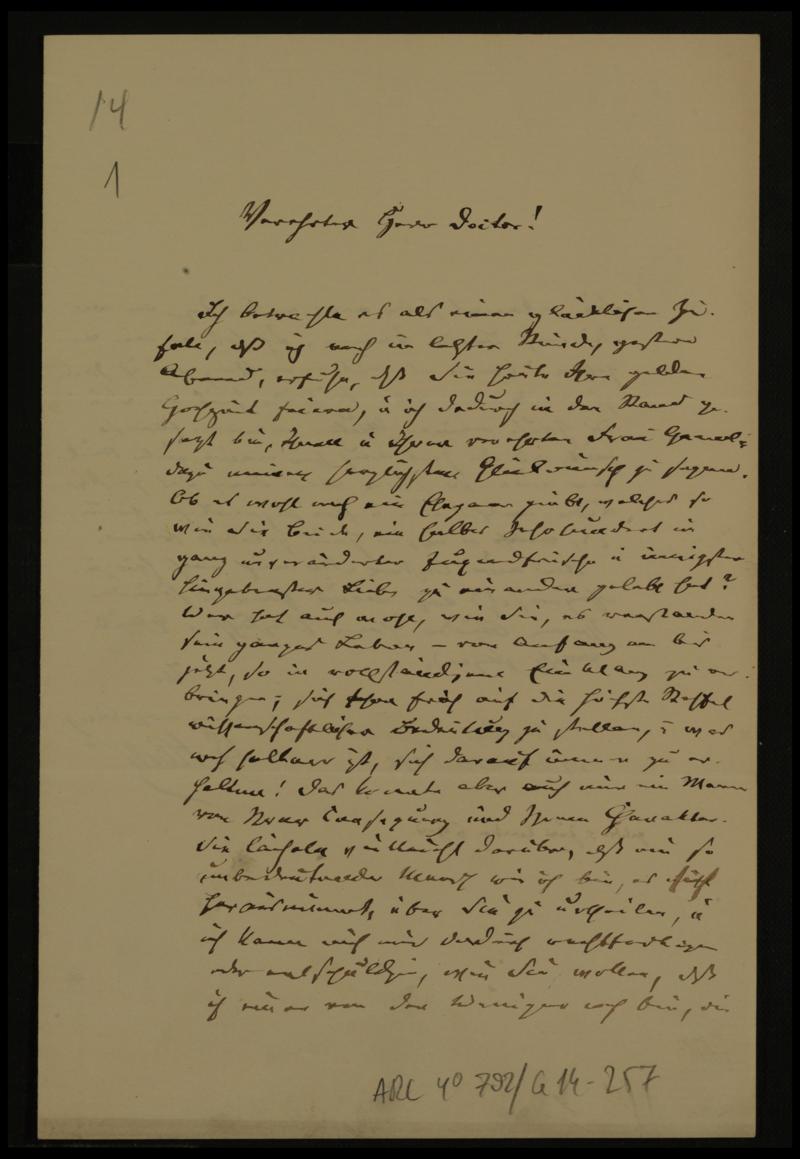 14
1
Verehrter Herr Doctor!
Ich betrachte es als einen glücklichen Zu-
falle, daß ich noch in letzter Stunde, gestern
Abend, erfuhr, daß Sie heute Ihre goldene
Hochzeit feiern, u ich dadurch in den Stand ge-
setzt bin, Ihnen u Ihrer verehrten Frau Gemal=
dazu meinen herzlichsten Glückwunsch zu sagen.
Ob es wohl noch ein Ehepaar giebt, welches so
wie Sie beide, ein halbes Jahrhundert in
ganz unveränderter Jugendfrische u innigster
hingebendster Liebe zu einander gelebt hat?
Wer hat auch mehr, wie Sie, es verstanden
sein ganzes Leben – von Anfang an bis
jetzt, so in vollständigem Einklang zu ver-
bringen; sich schon früh auf die höchste Staffel
wissenschaftlicher Bedeutung zu stellen, u was
noch seltener ist, sich darauf immer zu er-
halten! Das konnte aber auch nur ein Mann
von Ihrer Consequenz und Ihrem Charakter.
Sie lächeln vielleicht darüber, daß ein so
unbedeutender Mensch wie ich bin, es sich
herausnimmt, über Sie zu urtheilen, u
ich kann mich nur dadurch rechtfertigen
oder entschuldigen, wie Sie wollen, daß
ich einer von den Wenigen noch bin, die
ARC 4° 792/G 14-257